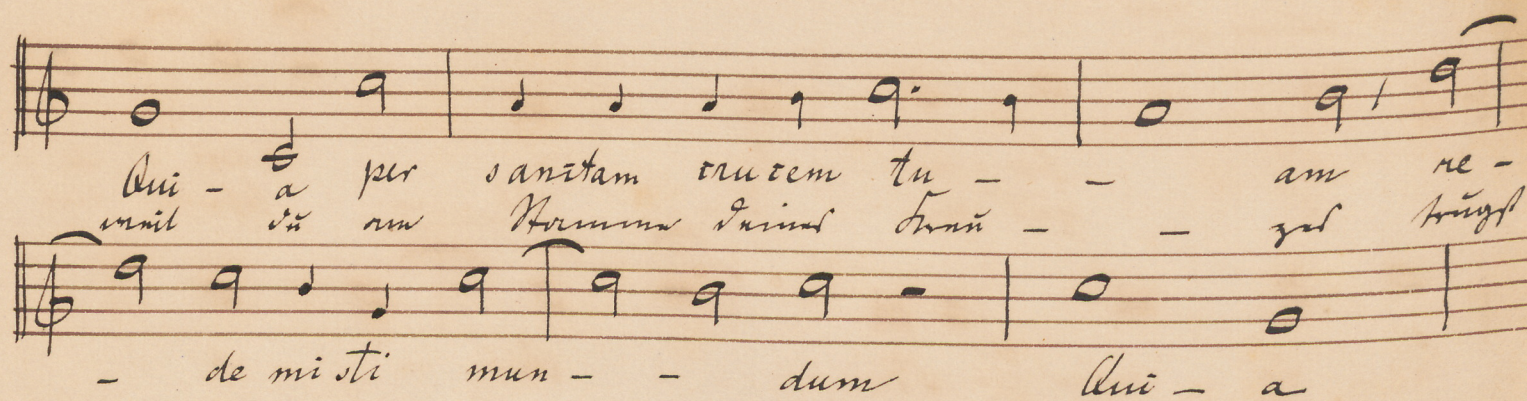 Qui - a per sanctam crucem tu - - am re -
weil du am Stamme deines Kreu - - zes trugst
- de mi sti mun - - dum Qui - a